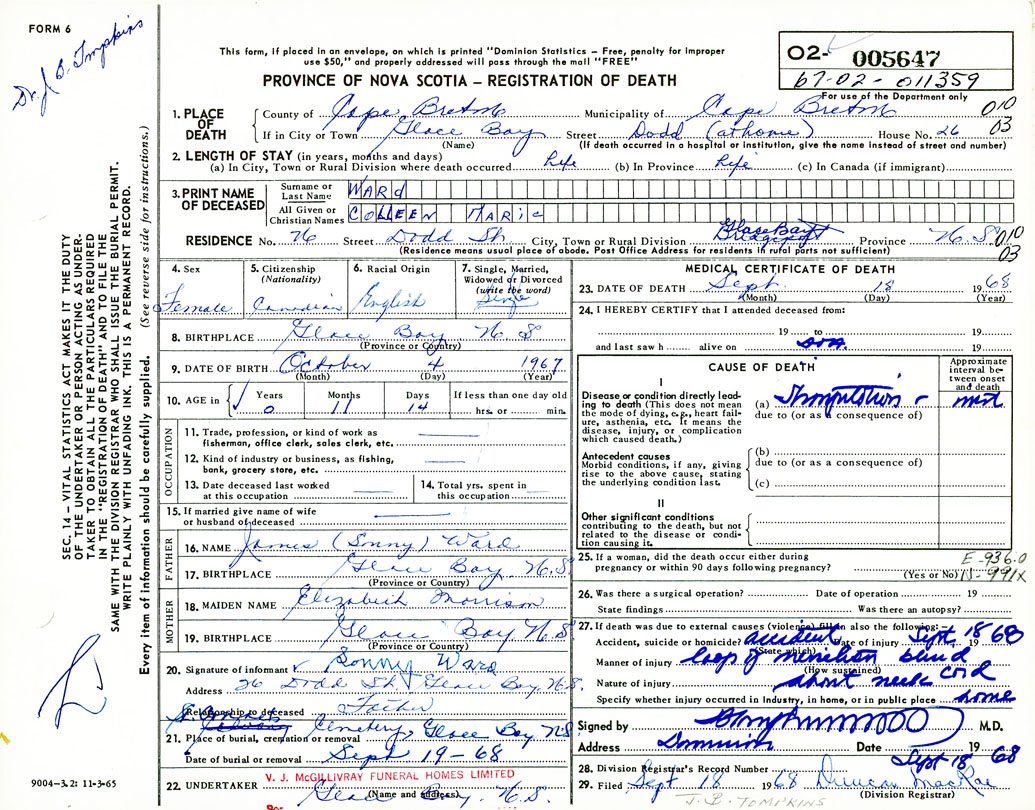 FORM 6
Dr. J B. Tompkins
This form, if placed in an envelope, on which is printed "Dominion Statistics – Free, penalty for improper
use $50," and properly addressed will pass through the mail "FREE"
PROVINCE OF NOVA SCOTIA – REGISTRATION OF DEATH
02- 005647
67-02-011359
For use of the Department only
010
03
1. PLACE OF DEATH
County of Cape Breton Municipality of Cape Breton
If in City or Town Glace Bay Street Dodd (at home) House No. 26
(Name) (If death occurred in a hospital or institution, give the name instead of street and number)
2. LENGTH OF STAY (in years, months and days)
(a) In City, Town or Rural Division where death occurred life (b) In Province life (c) In Canada (if immigrant)
3. PRINT NAME OF DECEASED
Surname or Last Name WARd
All Given or Christian Names COLLEEN MARie
RESIDENCE No. 76 Street Dodd St. City, Town or Rural Division Glace Bay Province N.S.
010
03
(Residence means usual place of abode. Post Office Address for residents if rural parts not sufficient)
4. Sex
Female
5. Citizenship (Nationality)
Canadian
6. Racial Origin
English
7. Single, Married, Widowed or Divorced (write the word)
Single
8. BIRTHPLACE Glace Bay N S
(Province or Country)
9. DATE OF BIRTH October 4 1967
(Month) (Day) (Year)
10. AGE in
Years 0
Months 11
Days 14
If less than one day old
hrs. or min.
OCCUPATION
11. Trade, profession, or kind of work as
fisherman, office clerk, sales clerk, etc.
12. Kind of industry or business, as fishing,
bank, grocery store, etc.
13. Date deceased last worked
at this occupation
14. Total yrs. spent in
this occupation
15. If married give name of wife
or husband of deceased
FATHER
16. NAME James (Sonny) Ward
17. BIRTHPLACE Glace Bay, N.S
(Province or Country)
MOTHER
18. MAIDEN NAME Elizabeth Morrison
19. BIRTHPLACE Glace Bay N.S
(Province or Country)
20. Signature of informant Sonny Ward
Address 26 Dodd St. Glace Bay, N.S.
Relationship to deceased Father
Cemetery, Glace Bay NS
21. Place of burial, cremation or removal
Date of burial or removal Sept 19-68
V. J. McGILLIVRAY FUNERAL HOMES LIMITED
22. UNDERTAKER Glace Bay, N.S.
(Name and address)
Per
MEDICAL CERTIFICATE OF DEATH
23. DATE OF DEATH Sept. 18 1968
(Month) (Day) (Year)
24. I HEREBY CERTIFY that I attended deceased from:
19 to 19
and last saw h alive on 19
CAUSE OF DEATH
Approximate interval between onset and death
I
Disease or condition directly leading to death (This does not mean
the mode of dying, e.g., heart failure, asthenia, etc. It means the
disease, injury, or complication
which caused death.)
(a)
due to (or as a consequence of)
Antecedent causes
Morbid conditions, if any, giving
rise to the above cause, stating
the underlying condition last.
(b)
due to (or as a consequence of)
(c)
II
Other significant conditions
contributing to the death, but not
related to the disease or condition causing it.
25. If a woman, did the death occur either during
pregnancy or within 90 days following pregnancy?
(Yes or No)
E-936.0
N-991X
26. Was there a surgical operation? Date of operation 19
State findings Was there an autopsy?
27. If death was due to external causes (violence) fill in also the following:–
Accident, suicide or homicide? accident Date of injury Sept 18 1968
(State which)
Manner of injury loop of venetian blind
(How sustained)
Nature of injury about neck cord
Specify whether injury occurred in industry, in home, or in public place home
Signed by M.D.
Address Dominion Date Sept 18 1968
28. Division Registrar's Record Number
29. Filed Sept 18 1968 Duncan MacRae
(Division Registrar)
J. B. TOMPKINS
SEC. 14 – VITAL STATISTICS ACT MAKES IT THE DUTY
OF THE UNDERTAKER OR PERSON ACTING AS UNDER-
TAKER TO OBTAIN ALL THE PARTICULARS REQUIRED
IN THE "REGISTRATION OF DEATH" AND TO FILE THE
SAME WITH THE DIVISION REGISTRAR WHO SHALL ISSUE THE BURIAL PERMIT.
WRITE PLAINLY WITH UNFADING INK. THIS IS A PERMANENT RECORD.
Every item of information should be carefully supplied. (See reverse side for instructions.)
9004–3.2: 11-3-65